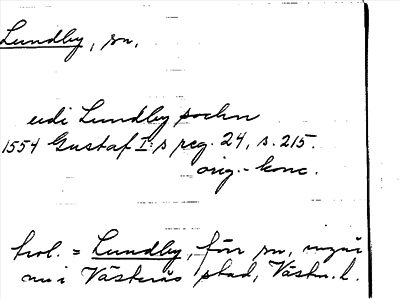 Lundby, sn.
udi Lundby sochn
1554 Gustaf I:s reg. 24, s. 215.
orig.-konc.
trol. = Lundby, förr sn, ingår
nu i Västerås stad, Västm. l.